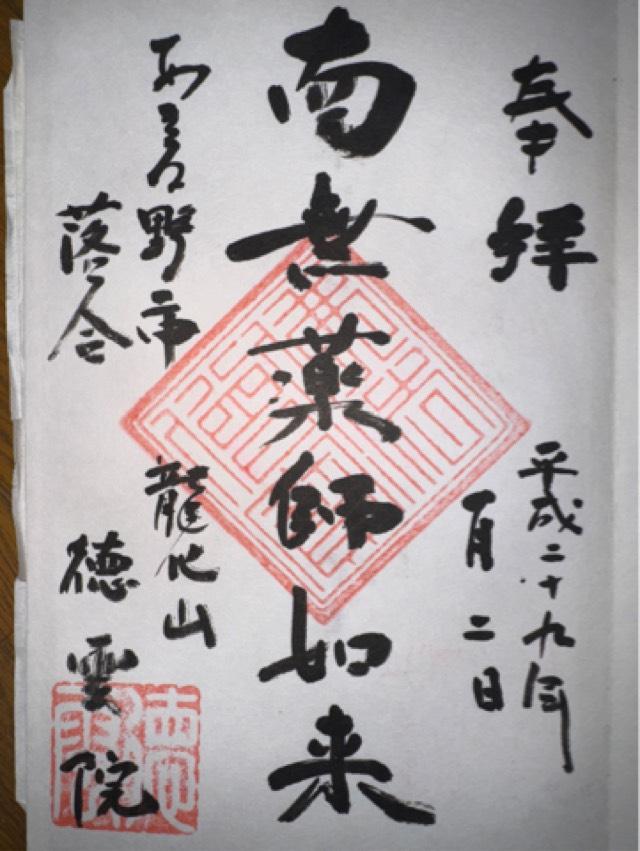 奉拝
平成二十九年
一月二日
南無薬師如来
あきる野市
落合
龍化山
徳雲院